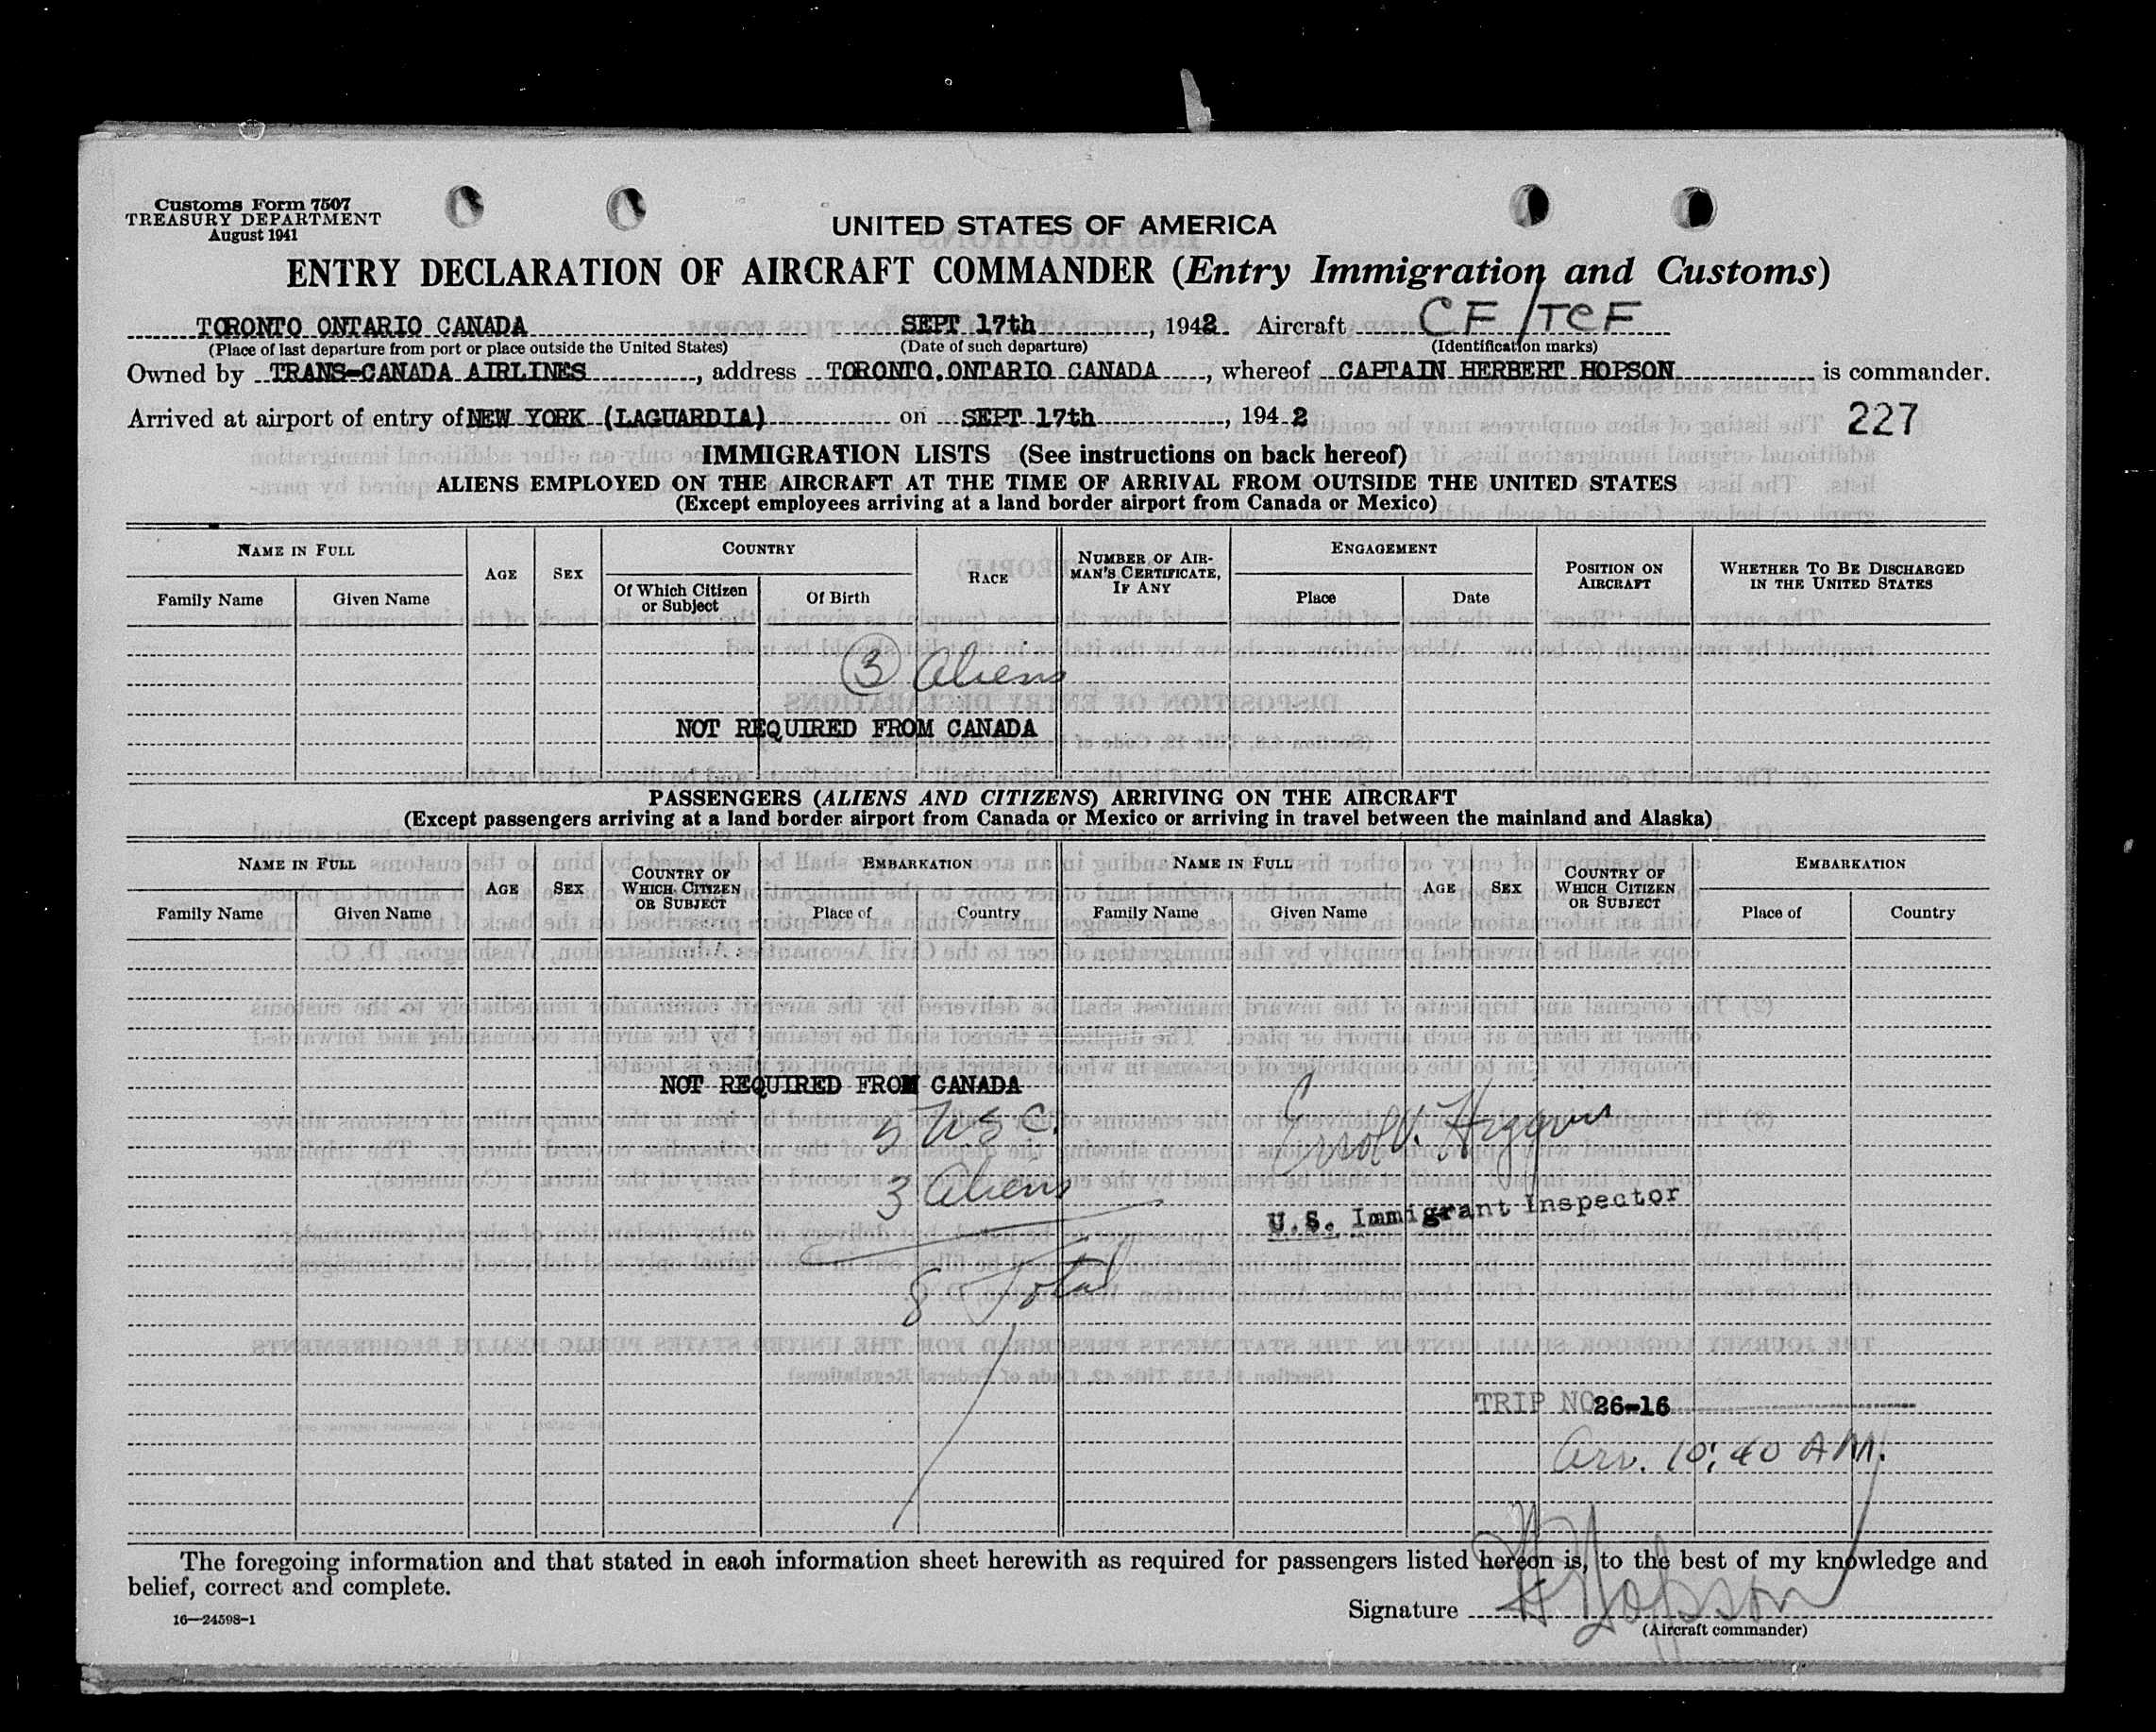 Customs Form 7507
TREASURY DEPARTMENT
August 1941
UNITED STATES OF AMERICA
ENTRY DECLARATION OF AIRCRAFT COMMANDER (Entry Immigration and Customs)
TORONTO ONTARIO CANADA SEPT 17th, 1942 Aircraft CF/TCF
(Place of last departure from port or place outside the United States) (Date of such departure) (Identification marks)
Owned by TRANS-CANADA AIRLINES, address TORONTO.ONTARIO CANADA, whereof CAPTAIN HERBERT HOPSON is commander.
Arrived at airport of entry of NEW YORK (LAGUARDIA) on SEPT 17th, 1942
227
IMMIGRATION LISTS (See instructions on back hereof)
ALIENS EMPLOYED ON THE AIRCRAFT AT THE TIME OF ARRIVAL FROM OUTSIDE THE UNITED STATES
(Except employees arriving at a land border airport from Canada or Mexico)
NAME IN FULL AGE SEX COUNTRY RACE NUMBER OF AIRMAN'S CERTIFICATE, IF ANY ENGAGEMENT POSITION ON AIRCRAFT WHETHER TO BE DISCHARGED IN THE UNITED STATES
Family Name Given Name Of Which Citizen or Subject Of Birth Place Date
3 Aliens
NOT REQUIRED FROM CANADA
PASSENGERS (ALIENS AND CITIZENS) ARRIVING ON THE AIRCRAFT
(Except passengers arriving at a land border airport from Canada or Mexico or arriving in travel between the mainland and Alaska)
NAME IN FULL AGE SEX COUNTRY OF WHICH CITIZEN OR SUBJECT EMBARKATION NAME IN FULL AGE SEX COUNTRY OF WHICH CITIZEN OR SUBJECT EMBARKATION
Family Name Given Name Place of Country Family Name Given Name Place of Country
NOT REQUIRED FROM CANADA
5 U.S.C.
3 Aliens
U.S. Immigrant Inspector
8 Total
TRIP NO 26-16
Arr. 10:40 AM.
The foregoing information and that stated in each information sheet herewith as required for passengers listed hereon is, to the best of my knowledge and
belief, correct and complete.
16—24598-1
Signature H Hopson
(Aircraft commander)